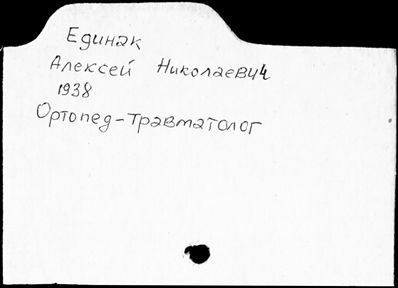 Единак
Алексей Николаевич
1938
Ортопед-травматолог